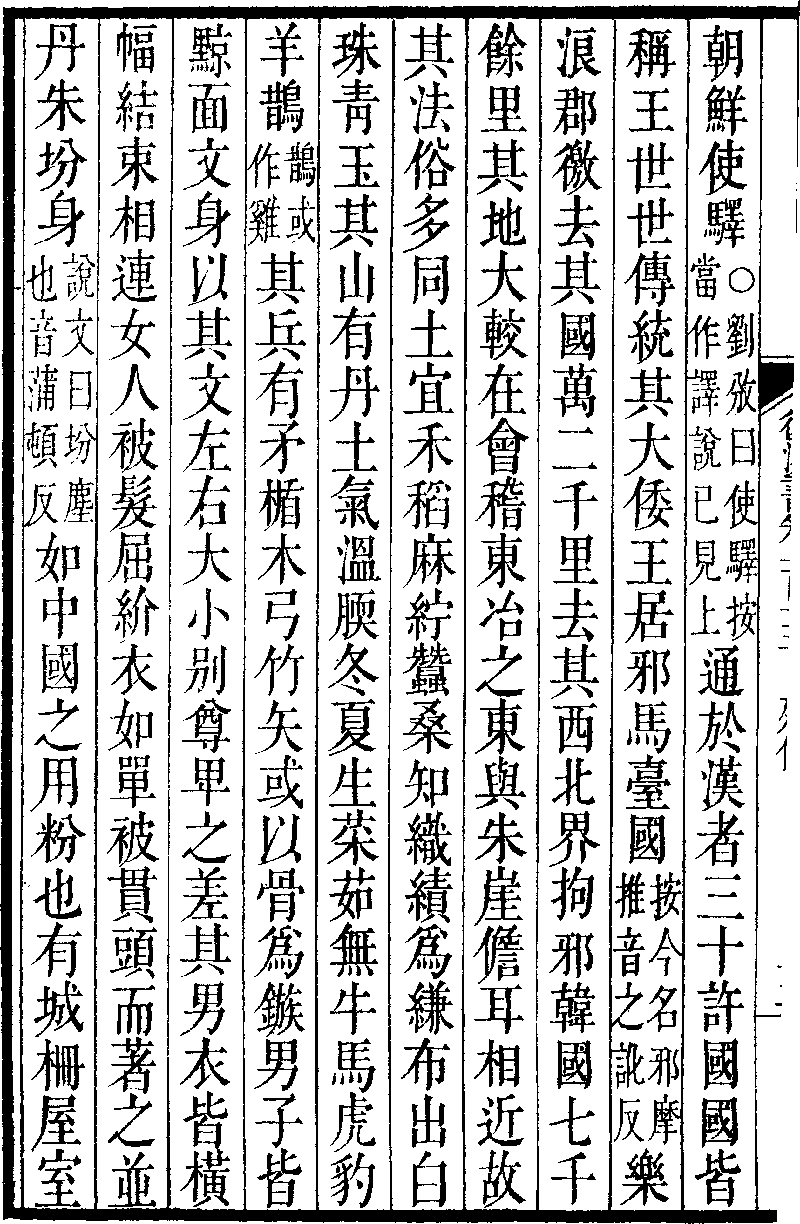 朝鮮使驛○劉攽曰使驛按當作譯說已見上通於漢者三十許國國皆
稱王世世傳統其大倭王居邪馬臺國按今名邪摩推音之訛反樂
浪郡徼去其國萬二千里去其西北界拘邪韓國七千
餘里其地大較在會稽東冶之東與朱崖儋耳相近故
其法俗多同土宜禾稻麻紵蠶桑知織績爲縑布出白
珠青玉其山有丹土氣溫腝冬夏生菜茹無牛馬虎豹
羊鵲鵲或作雞其兵有矛楯木弓竹矢或以骨爲鏃男子皆
黥面文身以其文左右大小別尊卑之差其男衣皆橫
幅結束相連女人被髮屈紒衣如單被貫頭而著之並
丹朱坋身說文曰坋塵也音蒲頓反如中國之用粉也有城柵屋室